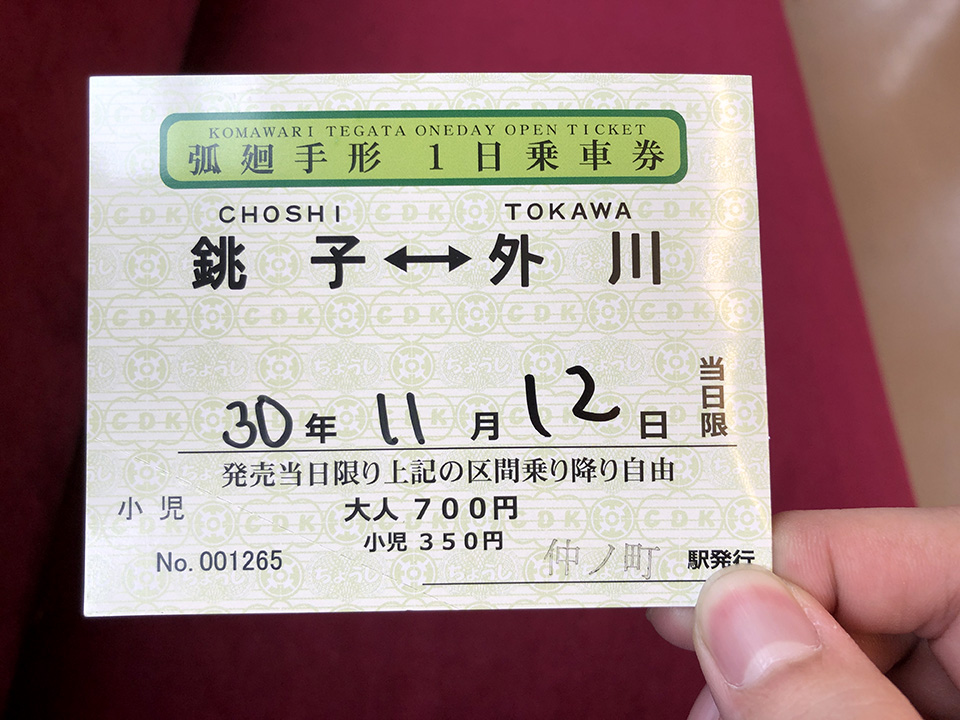 KOMAWARI TEGATA ONEDAY OPEN TICKET
弧廻手形 1日乗車券
CHOSHI TOKAWA
銚子↔外川
30年 11月 12日
当日限
発売当日限り上記の区間乗り降り自由
小児 大人 700円
小児 350円
No.001265 仲ノ町 駅発行
CDK
ちょうし